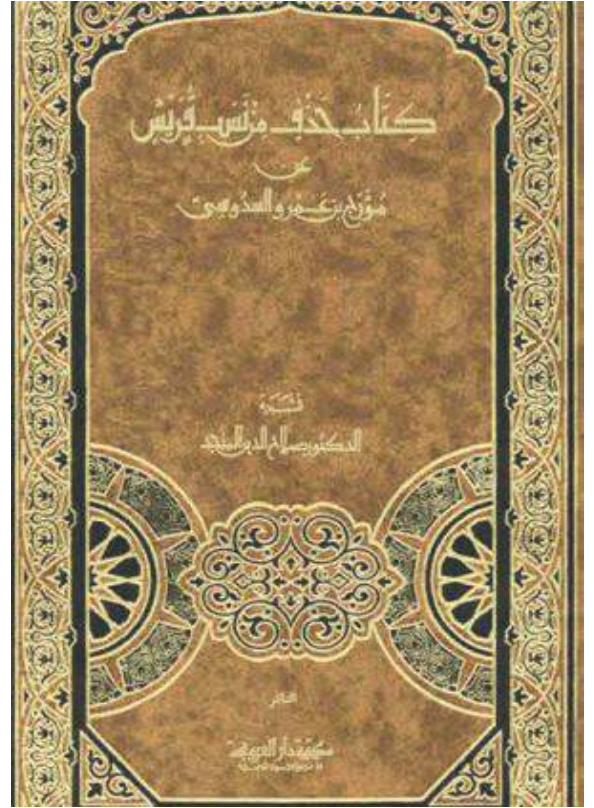 كتاب حذف من نسب قريش
عن
مؤرج بن عمرو السدوسي
نشره
الدكتور صلاح الدين المنجد
الناشر
مكتبة دار العروبة